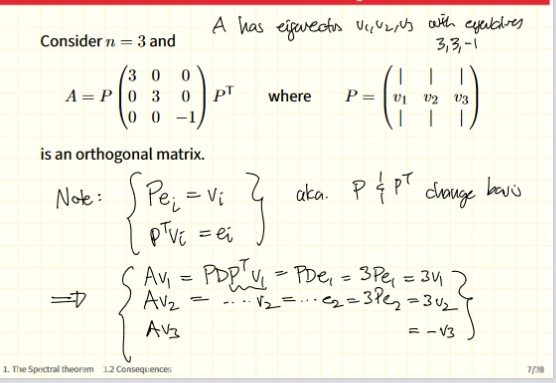 A has eigenvectors v₁, v₂, v₃ with eigenvalues
3, 3, -1
Consider n = 3 and
A = P (3 0 0; 0 3 0; 0 0 −1) Pᵀ where P = (| | |; v₁ v₂ v₃; | | |)
is an orthogonal matrix.
Note: { Peᵢ = vᵢ } aka. P & Pᵀ change basis
{ Pᵀvᵢ = eᵢ }
{ Av₁ = PDPᵀv₁ = PDe₁ = 3Pe₁ = 3v₁ }
⇒ { Av₂ = .... v₂ = ... e₂ = 3Pe₂ = 3v₂ }
{ Av₃ = -v₃ }
1. The Spectral theorem 1.2 Consequences 7/38